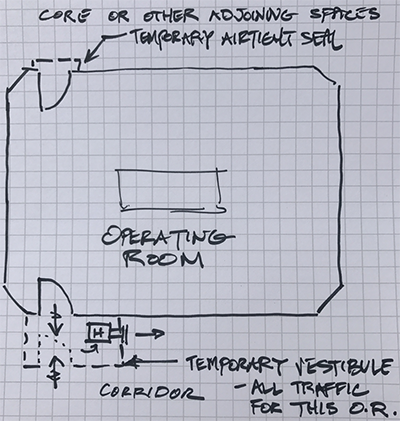 CORE OR OTHER ADJOINING SPACES
TEMPORARY AIRTIENT SEAL
OPERATING
ROOM
H
TEMPORARY VESTIBULE
- ALL TRAFFIC
FOR THIS O.R.
CORRIDOR